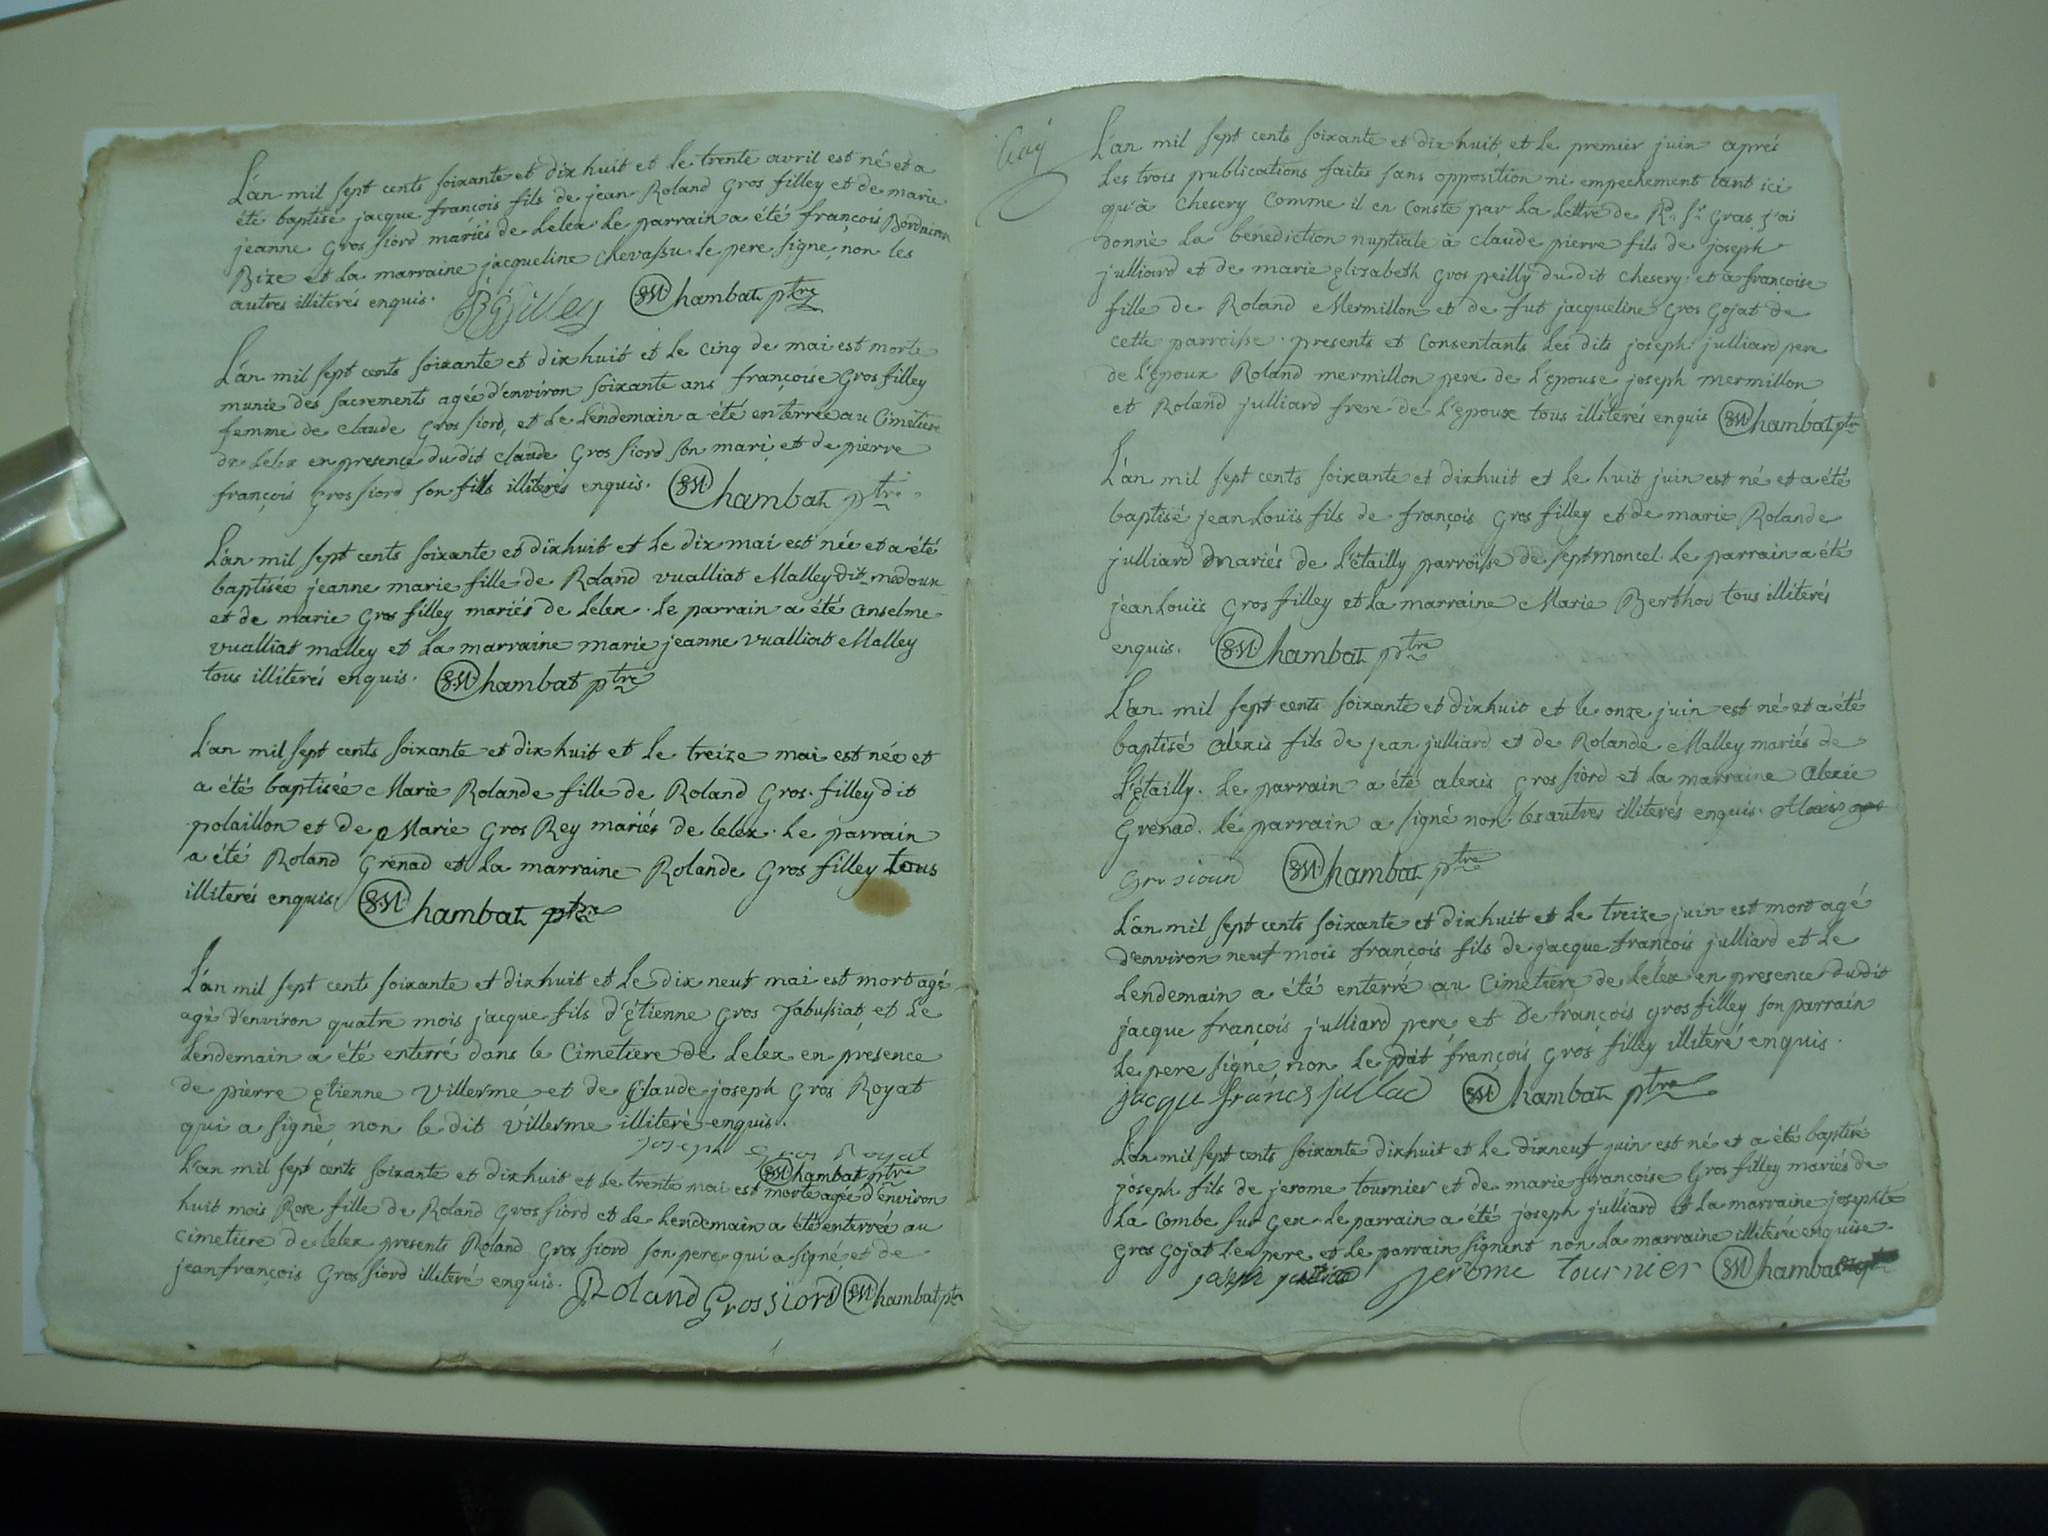 L'an mil sept cents soixante et dix huit et le trente avril est né et a
été baptisé jacque françois fils de jean Roland Gros filley et de marie
jeanne Gros siord mariés de Lelex. le parrain a été françois Bordairon
Bize et la marraine jacqueline Chevassu le pere signe, non les
autres illiterés enquis. Chambat ptre
L'an mil sept cents soixante et dix huit et le cinq de mai est morte
munie des sacrements agée d'environ soixante ans françoise Gros filley
femme de claude Gros siord, et le lendemain a été enterrée au Cimetiere
de Lelex en presence dudit claude Gros siord son mari et de pierre
françois Gros siord son fils illiterés enquis. Chambat ptre
L'an mil sept cents soixante et dixhuit et le dix mai est née et a été
baptisée jeanne marie fille de Roland vualliat Malley dit medoux
et de marie Gros filley mariés de lelex. le parrain a été anselme
vualliat malley et la marraine marie jeanne vualliat Malley
tous illiterés enquis. Chambat ptre
L'an mil sept cents soixante et dix huit et le treize mai est née et
a été baptisée Marie Rolande fille de Roland Gros filley dit
polaillon et de Marie Gros Rey mariés de lelex. le parrain
a été Roland Grenad et la marraine Rolande Gros filley tous
illiterés enquis. Chambat ptre
L'an mil sept cents soixante et dix huit et le dix neuf mai est mort agé
agé d'environ quatre mois jacque fils d'étienne Gros Jabussiat, et le
lendemain a été enterré dans le Cimetiere de Lelex en presence
de pierre etienne Villerme et de Claude joseph Gros Royat
qui a signè, non le dit Villerme illiteré enquis.
joseph Gros Royat
Chambat ptre
L'an mil sept cents soixante et dix huit et le trente mai est morte agée d'environ
huit mois Rose fille de Roland Gros siord et le lendemain a été enterrée au
cimetiere de lelex presents Roland Gros siord son pere qui a signé, et de
jean françois Gros siord illiteré enquis. Roland Gros siord Chambat ptre
L'an mil sept cents soixante et dix huit, et le premier juin aprés
les trois publications faites sans opposition ni empechement tant ici
qu'à Chesery comme il en conste par la lettre de Rd. Sr. Gras, j'ai
donnè la bénediction nuptiale à claude pierre fils de joseph
julliard et de marie elizabeth Gros peilly du dit Chesery. et à françoise
fille de Roland Mermillon et de fut jacqueline Gros Gojat de
cette parroisse. presents et Consentants les dits joseph julliard pere
de l'époux Roland mermillon pere de l'épouse joseph mermillon
et Roland julliard frere de l'époux tous illiterés enquis Chambat ptre
L'an mil sept cents soixante et dixhuit et le huit juin est né et a été
baptisé jean Louïs fils de françois Gros filley et de marie Rolande
julliard mariés de L'étailly parroisse de septmoncel le parrain a été
jean Louïs Gros filley et la marraine Marie Berthod tous illiterés
enquis. Chambat ptre
L'an mil sept cents soixante et dixhuit et le onze juin est né et a été
baptisé alexis fils de jean julliard et de Rolande Malley mariés de
L'étailly. le parrain a été alexis Gros siord et la marraine alexie
Grenad. le parrain a signé non les autres illiterés enquis. Alexis
Gros siourd Chambat ptre
L'an mil sept cents soixante et dixhuit et le treize juin est mort agé
d'environ neuf mois françois fils de jacque françois julliard et le
lendemain a été enterré au Cimetiere de lelex en presence dudit
jacque françois julliard pere et de françois gros filley son parrain
le pere signe, non le dit françois Gros filley illiteré enquis.
jacque francs julliad Chambat ptre
L'an mil sept cents soixante dixhuit et le dixneuf juin est né et a été baptisé
joseph fils de jerome tournier et de marie françoise Gros filley mariés de
La Combe sur Gex le parrain a été joseph julliard et la marraine josephte
Gros Gojat le pere et le parrain signent non la marraine illiterée enquise.
jerome tournier Chambat